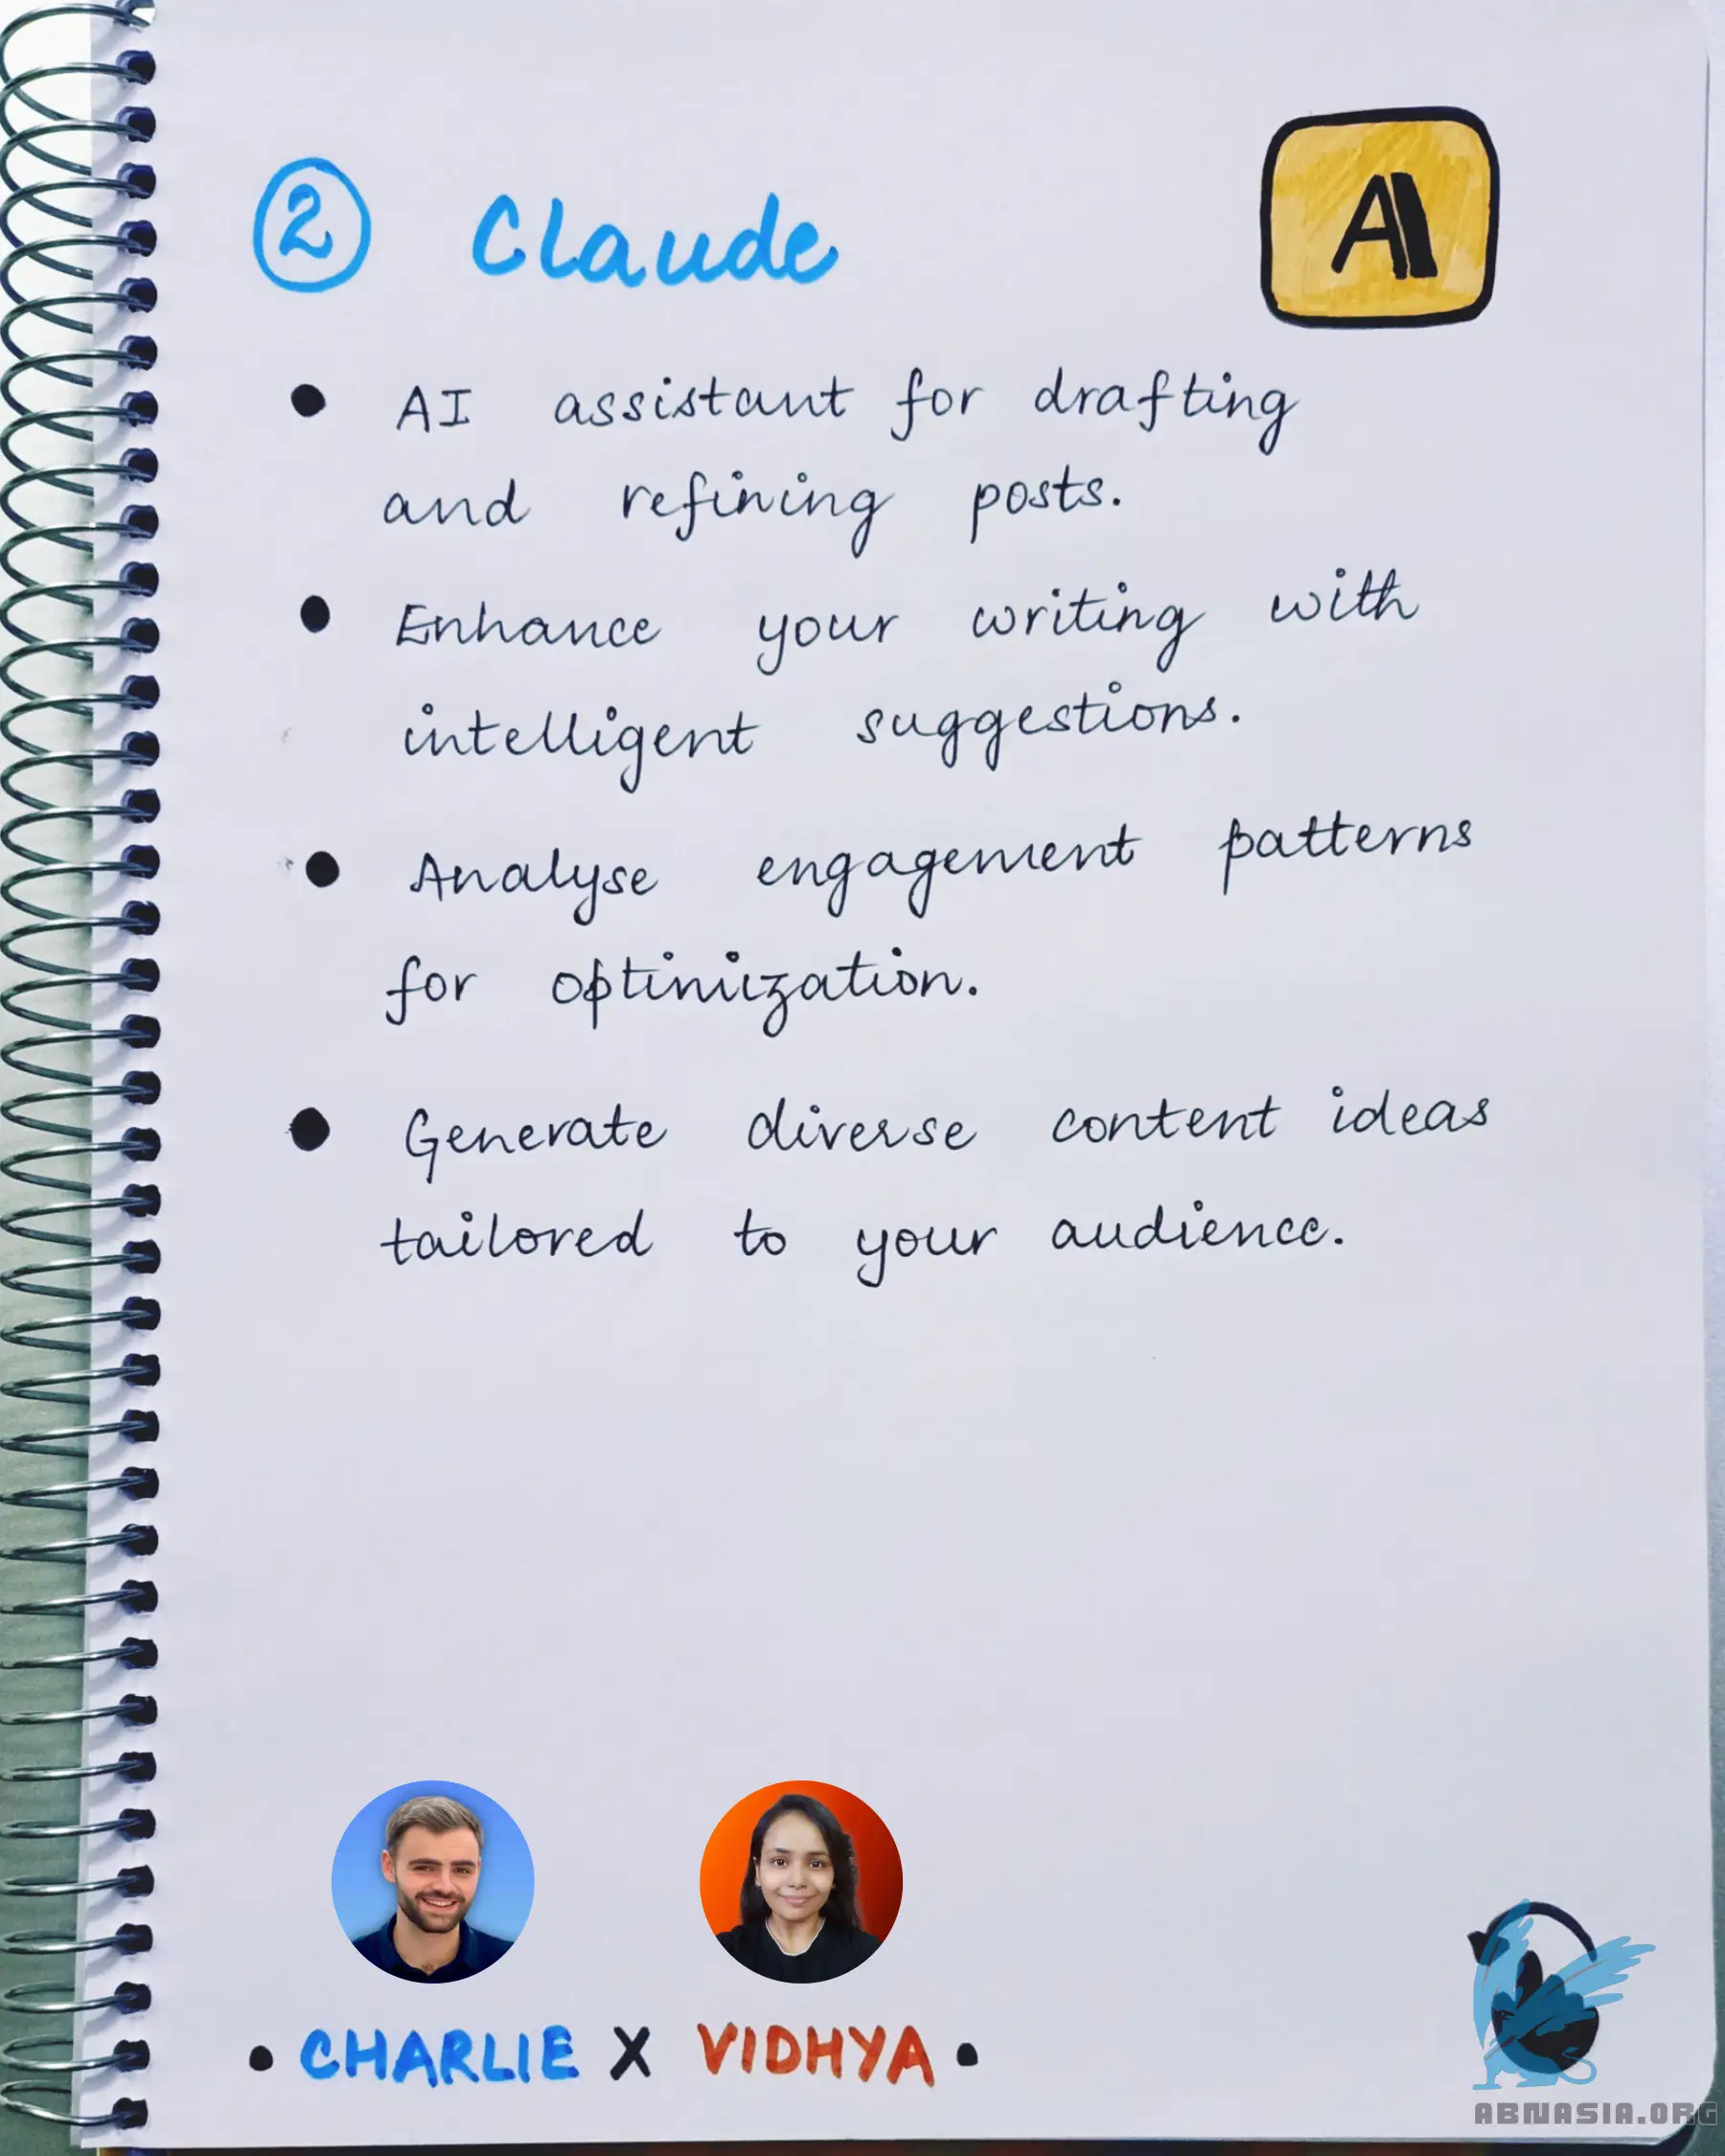 2 Claude
AI
AI assistant for drafting
and refining posts.
Enhance your writing with
intelligent suggestions.
Analyse engagement patterns
for optimization.
Generate diverse content ideas
tailored to your audience.
CHARLIE X VIDHYA
ABNASIA.ORG